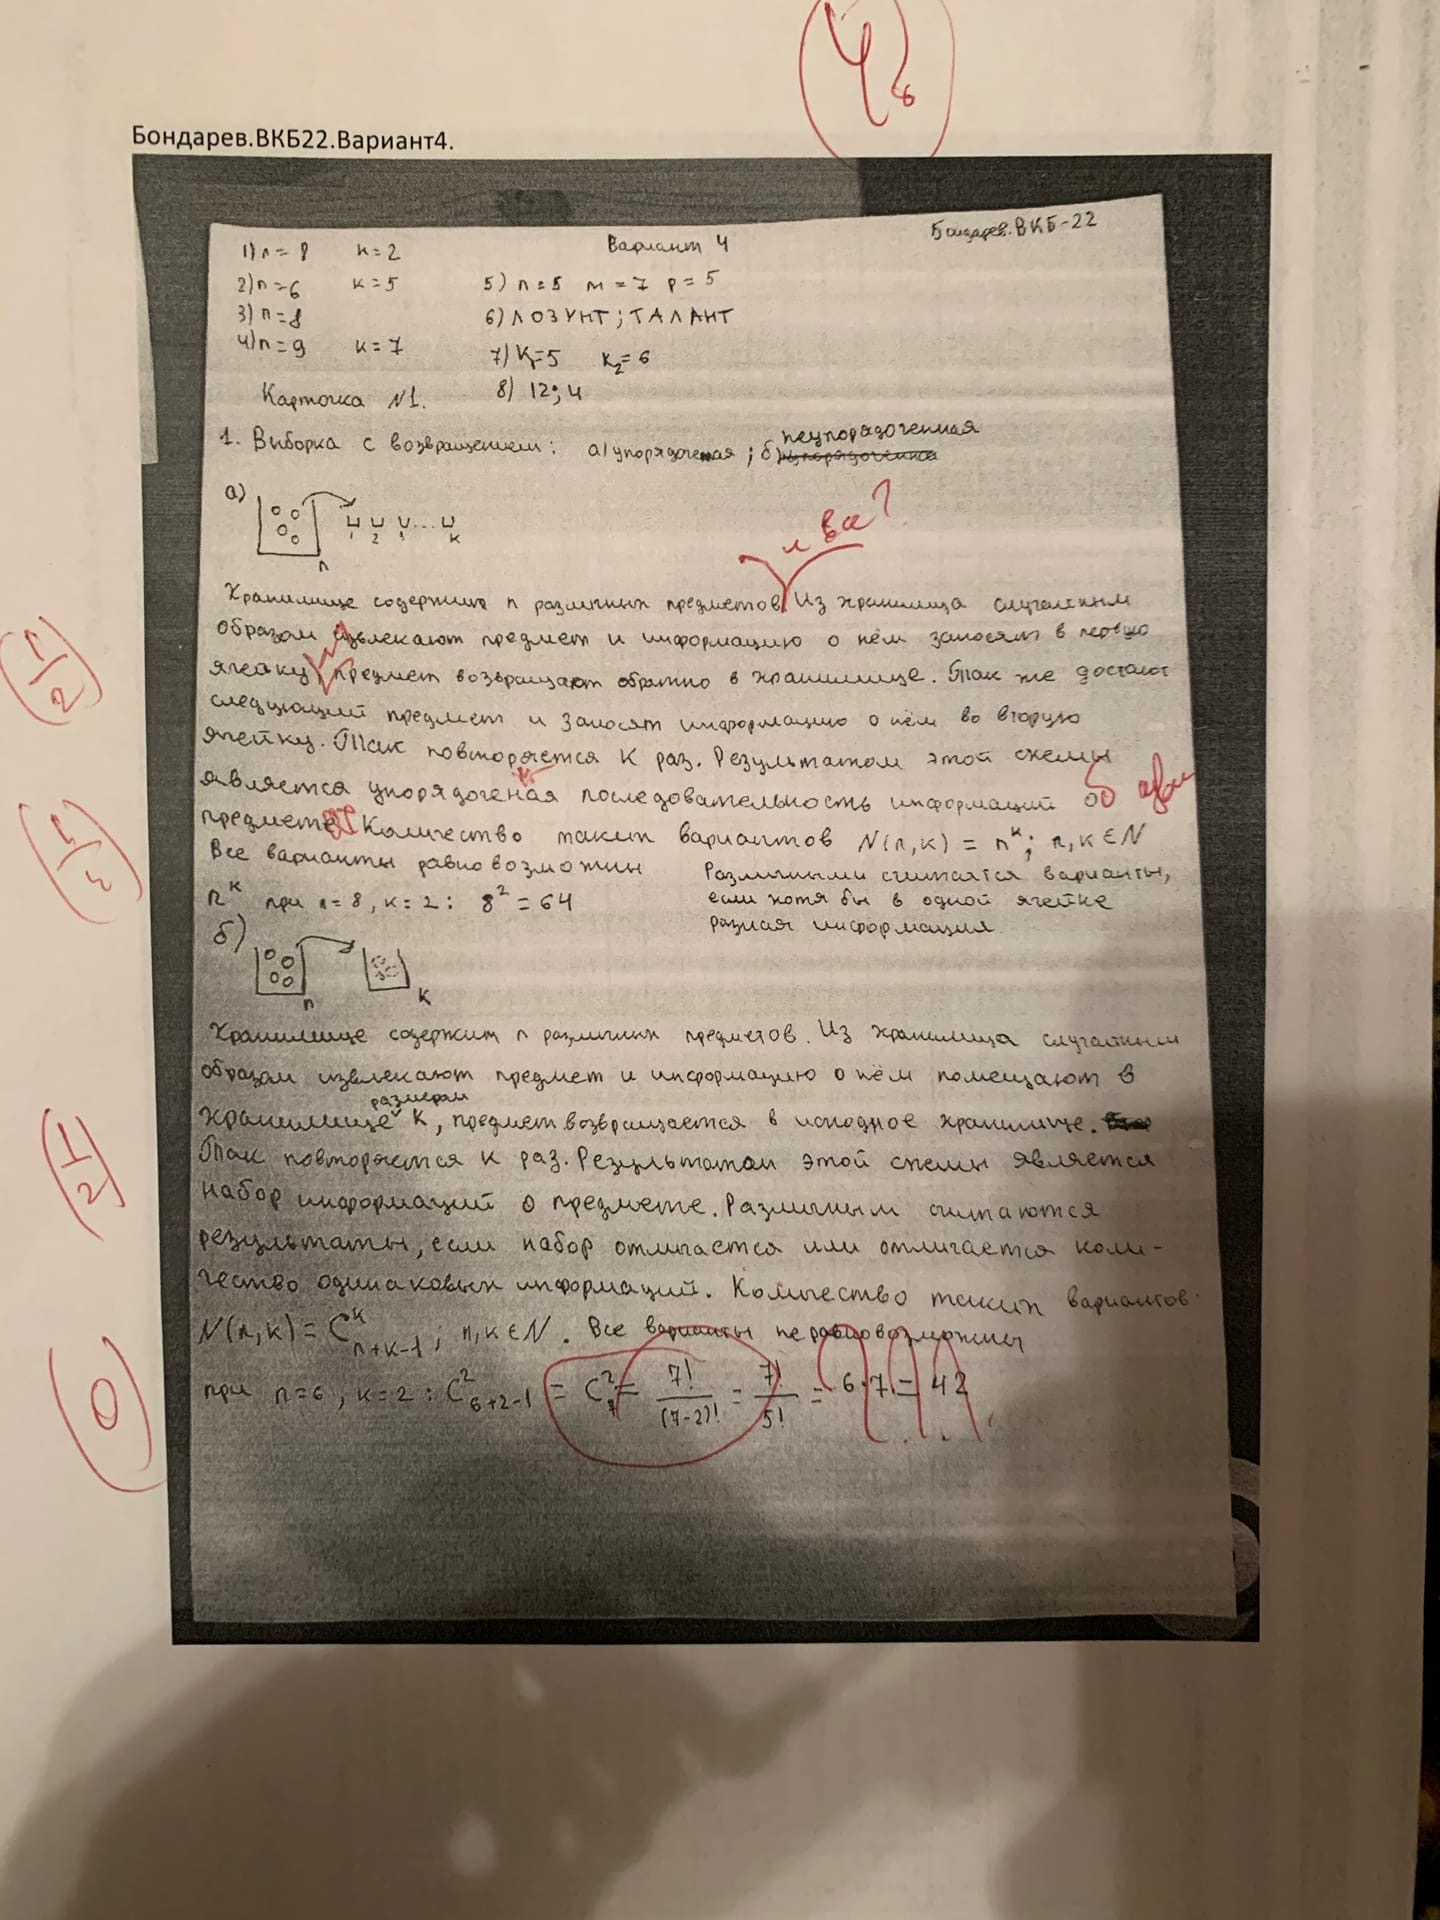 4
Бондарев.ВКБ22.Вариант4.
Бондарев.ВКБ-22
Вариант 4
1) n = 8 k = 2
2) n = 6 k = 5
3) n = 8
4) n = 9 k = 7
5) n = 5 m = 7 p = 5
6) ЛОЗУНГ; ТАЛАНТ
7) K₁=5 K₂=6
8) 12; 4
Карточка №1.
1. Выборка с возвращением: а) упорядоченая; б) неупорядоченная
а)
1 2 3 ... k
n
и все?
Хранилище содержит n различных предметов. Из хранилища случайным
образом извлекают предмет и информацию о нём заносят в первую
ячейку, предмет возвращают обратно в хранилище. Так же достают
следующий предмет и заносят информацию о нём во вторую
ячейку. Так повторяется K раз. Результатом этой схемы
является упорядоченая последовательность информаций о
предмете. Количество таких вариантов N(n,k) = n^k; n,k ∈ N
Все варианты равновозможны
Различными считаются варианты,
если хотя бы в одной ячейке
разная информация.
n^k при n = 8, k = 2: 8² = 64
б)
n k
Хранилище содержит n различных предметов. Из хранилища случайным
образом извлекают предмет и информацию о нём помещают в
хранилище размером K, предмет возвращается в исходное хранилище.
Так повторяется K раз. Результатом этой схемы является
набор информаций о предмете. Различным считаются
результаты, если набор отличается или отличается коли-
чество одинаковых информаций. Количество таких вариантов
N(n,k) = C^k_{n+k-1}; n,k ∈ N. Все варианты неравновозможны
при n=6, k=2: C²_{6+2-1} = C²_7 = 7!/(7-2)! = 7!/5! = 6·7 = 42
1/2
1/2
0